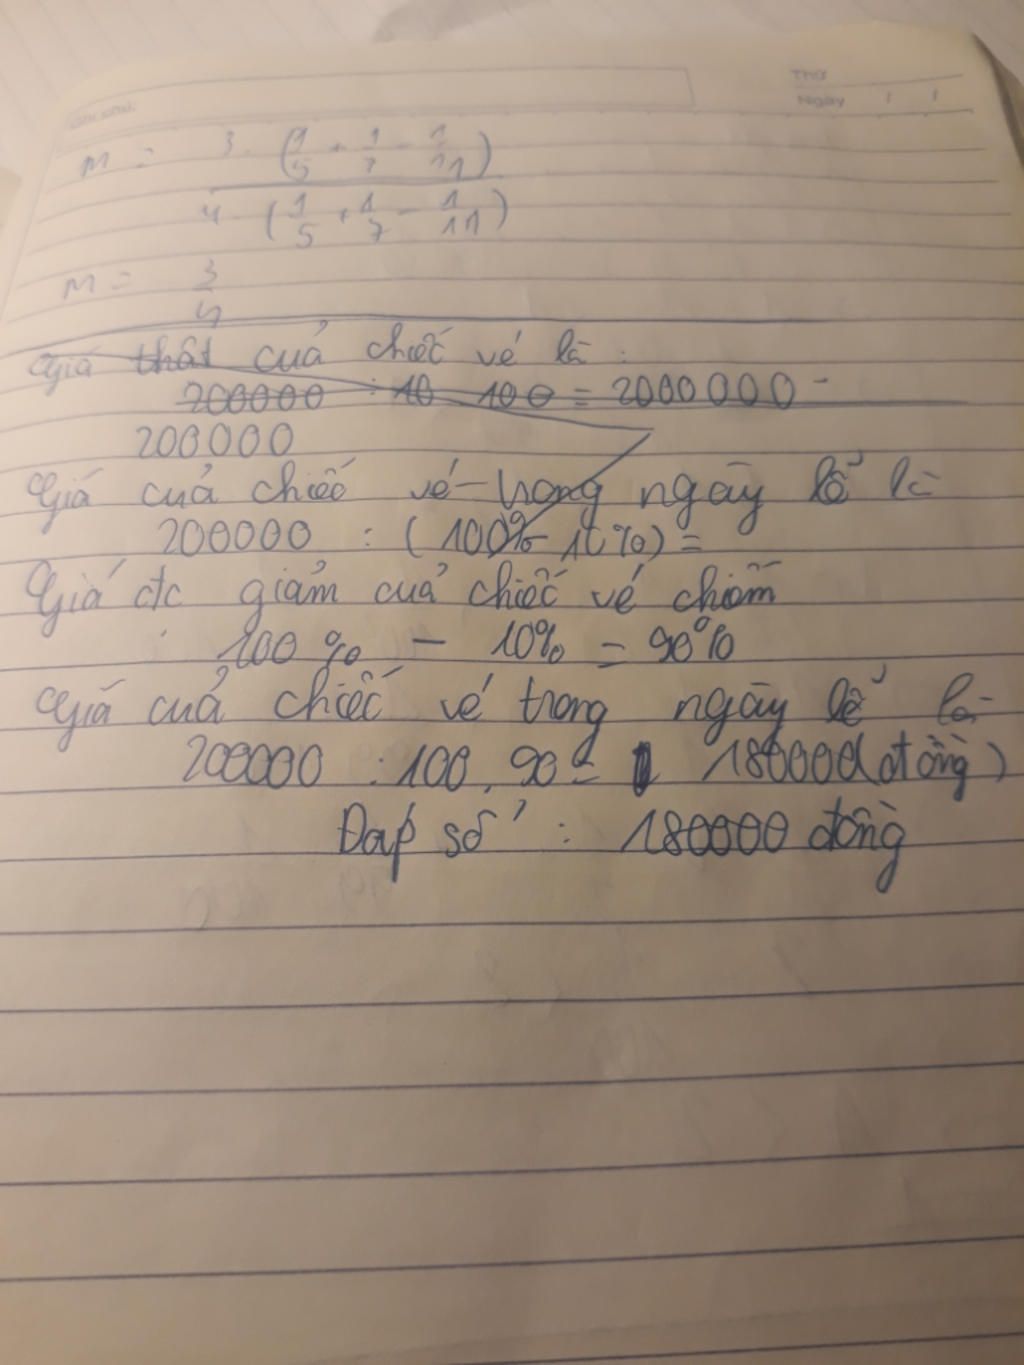 Thứ
Ngày / /
M = 3 . (1/5 + 1/7 - 1/11)
4 . (1/5 + 1/7 - 1/11)
M = 3/4
Giá thật cuả chiếc vé là :
200000 : 10 100 = 2000000
200000
Giá cuả chiếc vé trong ngày lễ là
200000 : (100% - 10%) =
Giá đc giảm cuả chiếc vé chiếm
100% - 10% = 90%
Giá cuả chiếc vé trong ngày lễ là
200000 : 100 . 90 = 180000 (đồng)
Đáp số : 180000 đồng